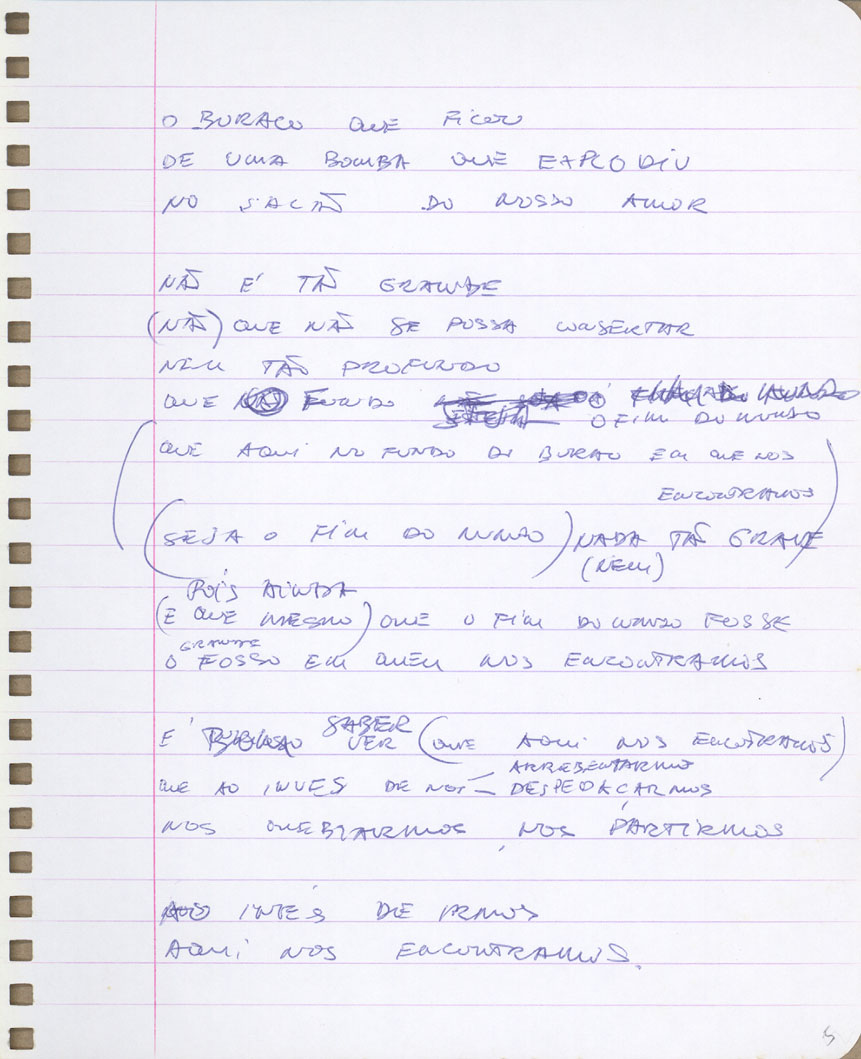 O BURACO QUE FICOU
DE UMA BOMBA QUE EXPLODIU
NO SAGÃO DO NOSSO AMOR
NÃO É TÃO GRANDE
(NÃO) QUE NÃO SE POSSA CONSERTAR
NEM TÃO PROFUNDO
QUE NO FUNDO
O FIM DO MUNDO
QUE AQUI NO FUNDO DO BURACO EM QUE NOS
ENCONTRAMOS
(SEJA O FIM DO MUNDO) NADA TÃO GRAVE
(NEM)
POIS AINDA
(E QUE MESMO) QUE O FIM DO MUNDO FOSSE
GRANDE
O FOSSO EM QUEM NOS ENCONTRAMOS
SABER
É VER (QUE AQUI NOS ENCONTRAMOS)
ARREBENTARMOS
QUE AO INVES DE NOS DESPEDAÇARMOS
NOS QUEBRARMOS, NOS PARTIRMOS
AO INVÉS DE IRMOS
AQUI NOS ENCONTRAMOS.